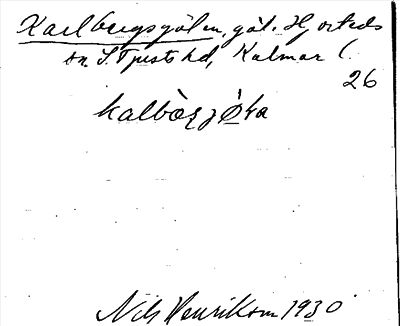 Karlbergsgölen, göl. Hjorteds
sn. S. Tjusts hd, Kalmar l.
26
kalbàrjǿka
Nils Henrikson 1930